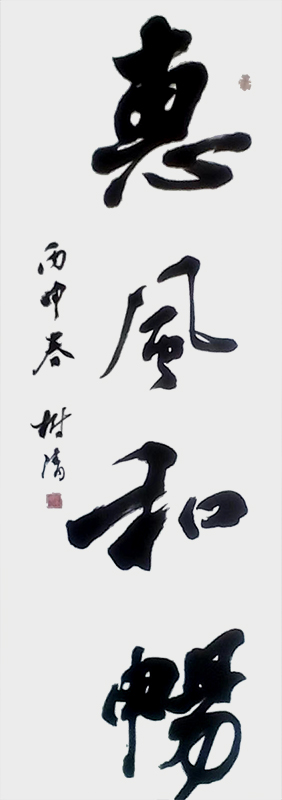 惠風和暢
丙申春
樹清